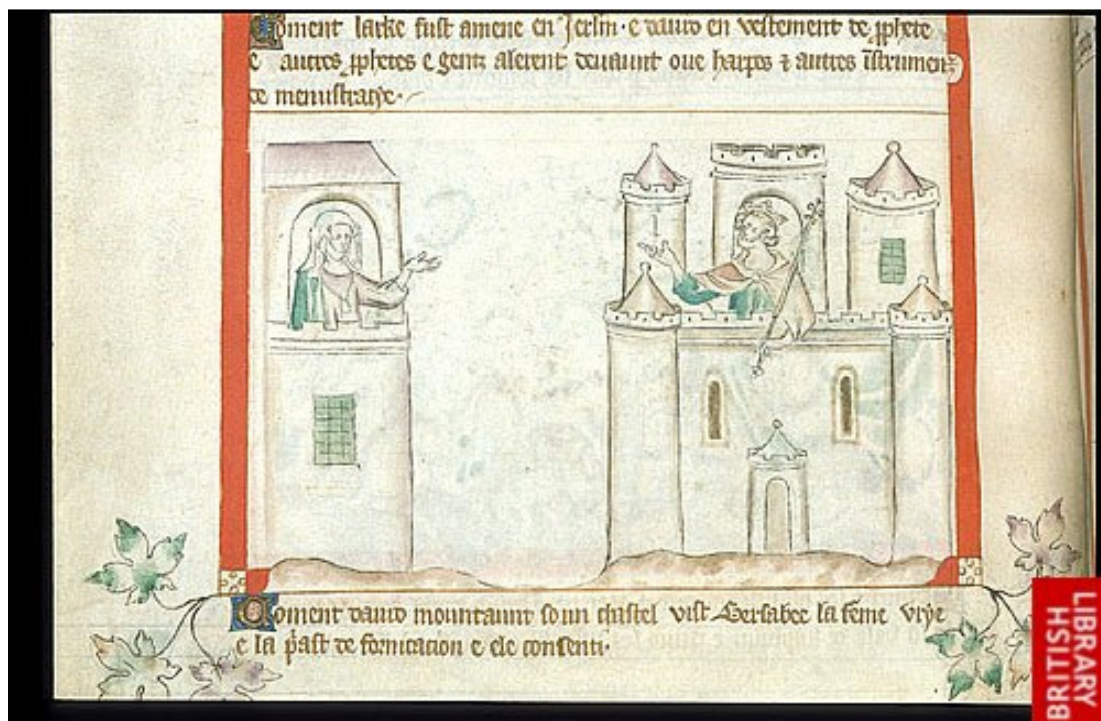 Coment larke fust amene en Jerlm · e dauid en vestement de pphete
e autres pphetes e gentz alerent deuaunt oue harpes ⁊ autres īstrumenz
de menistracye ·
Coment dauid mountaunt soun chastel vist Bersabee la feme vrye
e la p̄ast de fornicacion e ele consenti ·
BRITISH
LIBRARY